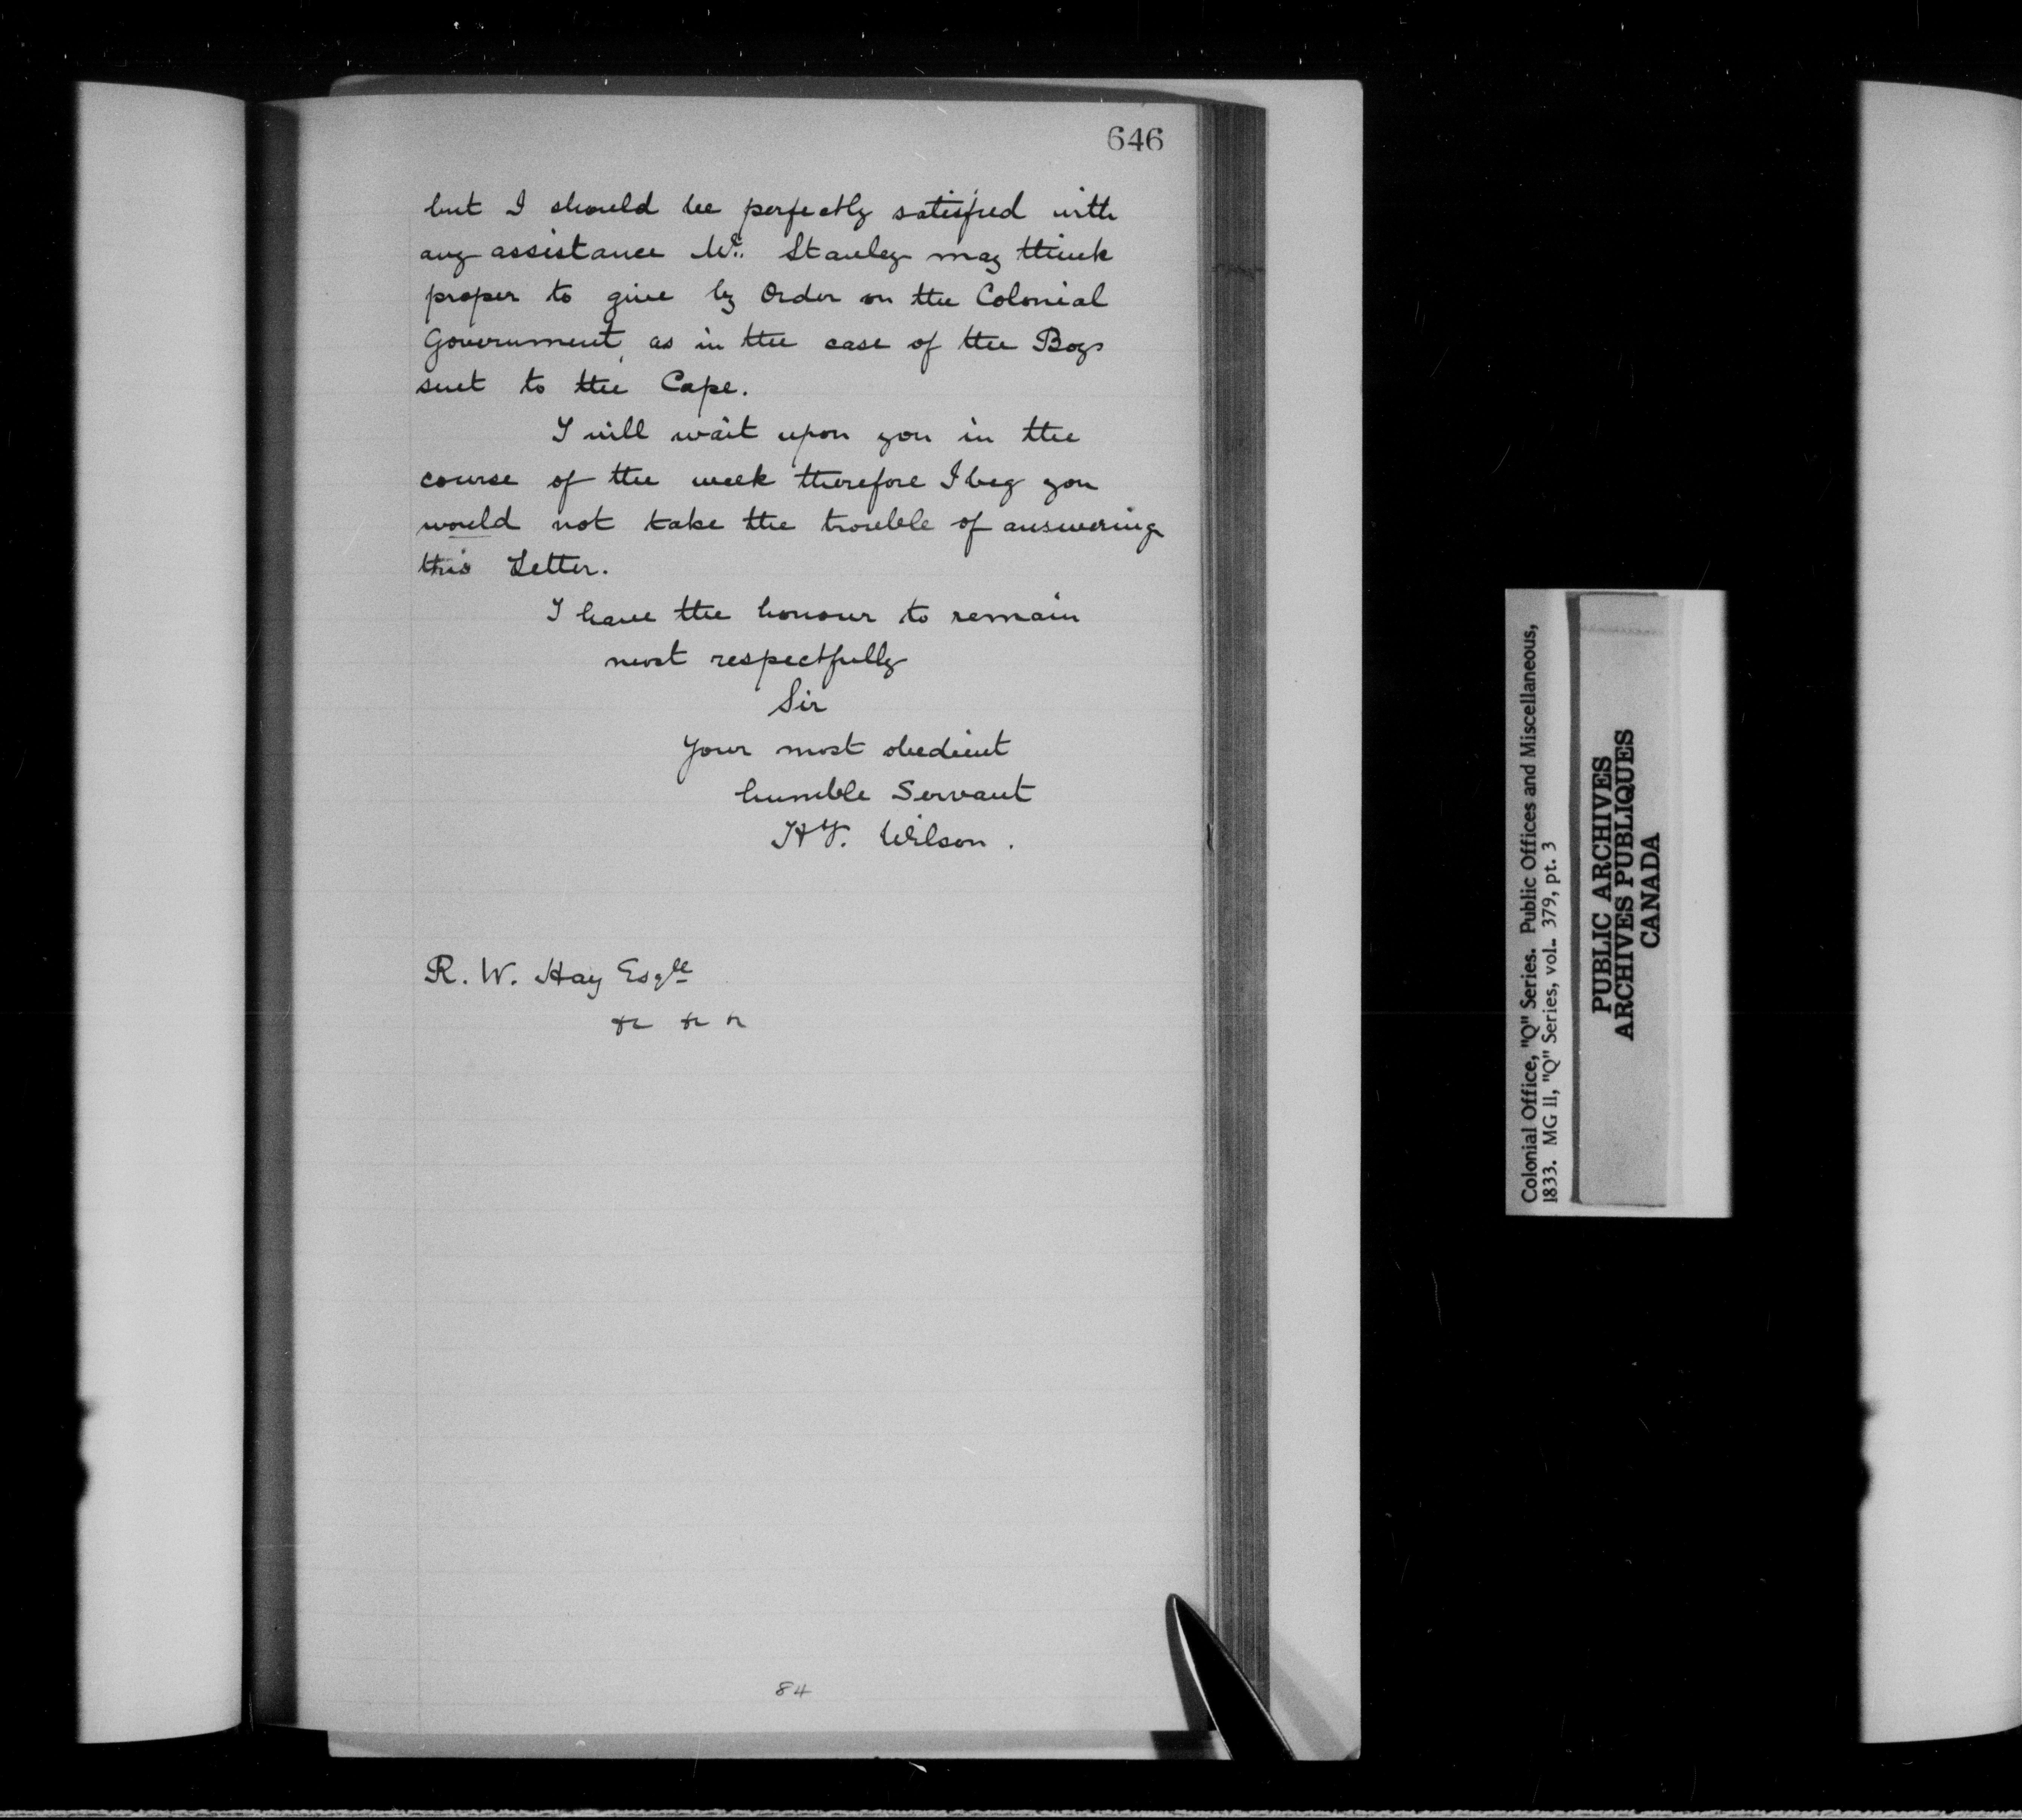 646
but I should be perfectly satisfied with
any assistance Mr. Stanley may think
proper to give by Order on the Colonial
Government, as in the case of the Boys
sent to the Cape.
I will wait upon you in the
course of the week therefore I beg you
would not take the trouble of answering
this Letter.
I have the honour to remain
most respectfully
Sir
Your most obedient
humble Servant
Hy. Wilson.
R. W. Hay Esqre
&c &c &c
84
Colonial Office, "Q" Series. Public Offices and Miscellaneous,
1833. MG 11, "Q" Series, vol. 379, pt. 3
PUBLIC ARCHIVES
ARCHIVES PUBLIQUES
CANADA